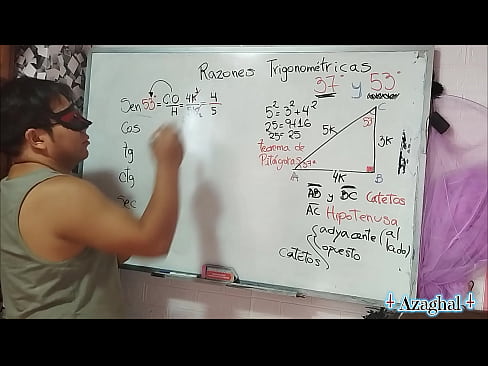 Razones Trigonométricas
37° y 53°
Sen 53° = CO/H = 4K/5K = 4/5
Cos
tg
ctg
Sec
5² = 3² + 4²
25 = 9 + 16
25 = 25
teorema de
Pitágoras
C
53°
5K
3K
37°
A
4K
B
AB y BC Catetos
AC Hipotenusa
Catetos
adyacente (al lado)
opuesto
Azaghal